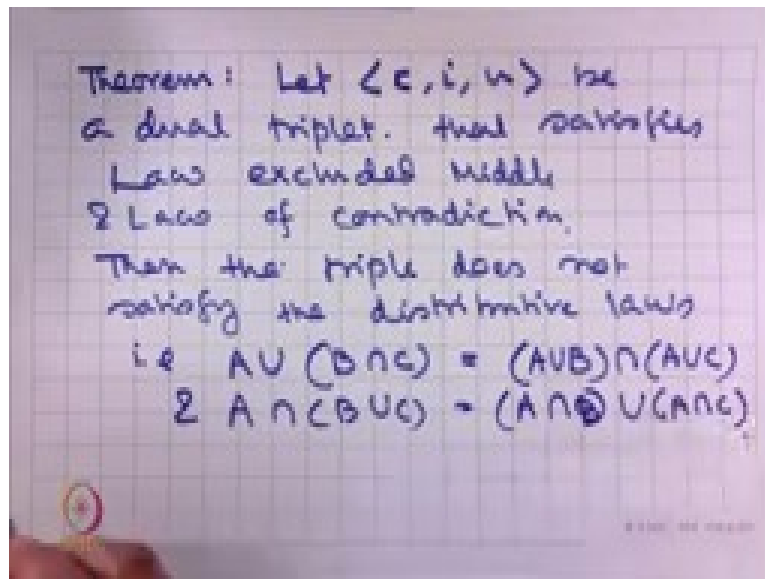 Theorem: Let <c, i, n> be
a dual triplet. that satisfies
Law excluded middle
& Law of contradiction.
Then the triple does not
satisfy the distributive laws
i.e A∪(B∩C) = (A∪B)∩(A∪C)
& A∩(B∪C) = (A∩B)∪(A∩C)